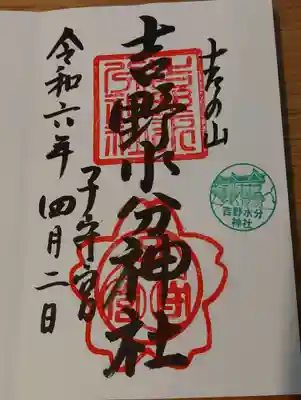 の山
吉野水分
神社
吉野水分神社
子守宮
令和六年四月二日